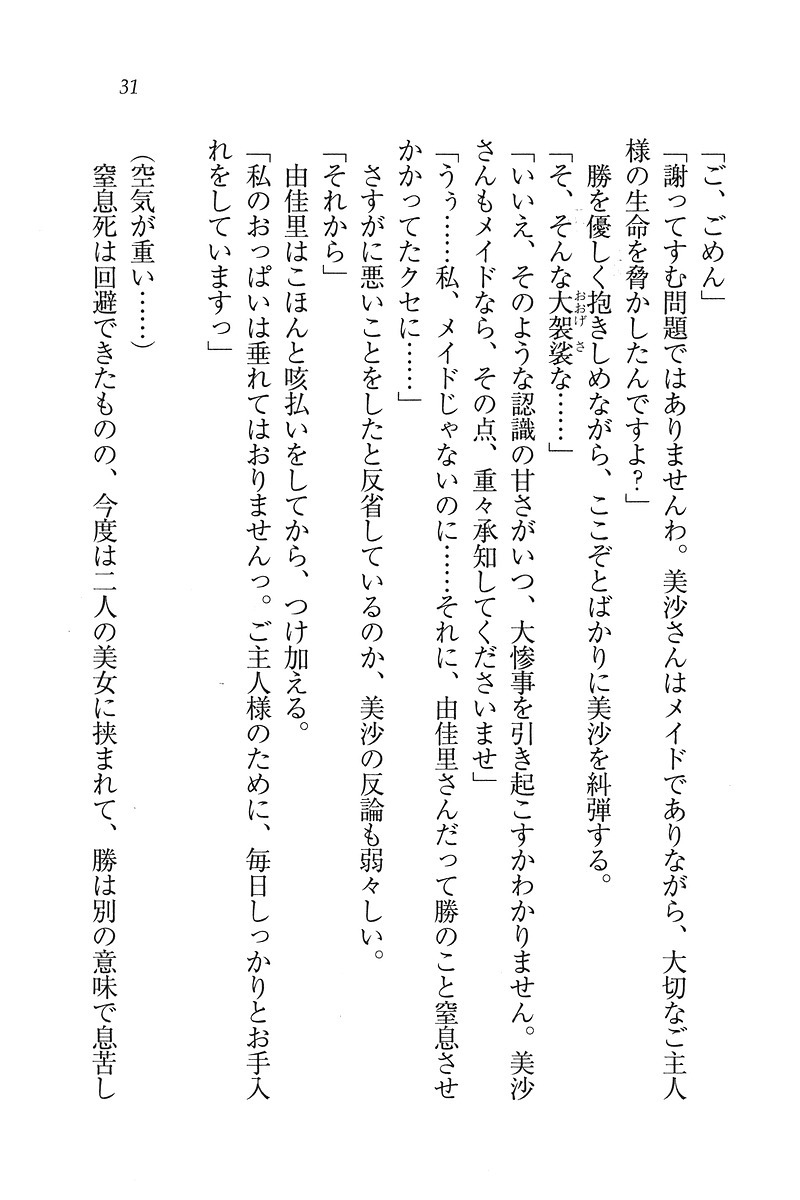 31
「ご、ごめん」
「謝ってすむ問題ではありませんわ。美沙さんはメイドでありながら、大切なご主人
様の生命を脅かしたんですよ?」
勝を優しく抱きしめながら、ここぞとばかりに美沙を糾弾する。
「そ、そんな大袈裟な……」
「いいえ、そのような認識の甘さがいつ、大惨事を引き起こすかわかりません。美沙
さんもメイドなら、その点、重々承知してくださいませ」
「うぅ……私、メイドじゃないのに……それに、由佳里さんだって勝のこと窒息させ
かかってたクセに……」
さすがに悪いことをしたと反省しているのか、美沙の反論も弱々しい。
「それから」
由佳里はこほんと咳払いをしてから、つけ加える。
「私のおっぱいは垂れてはおりませんっ。ご主人様のために、毎日しっかりとお手入
れをしていますっ」
(空気が重い……)
窒息死は回避できたものの、今度は二人の美女に挟まれて、勝は別の意味で息苦し